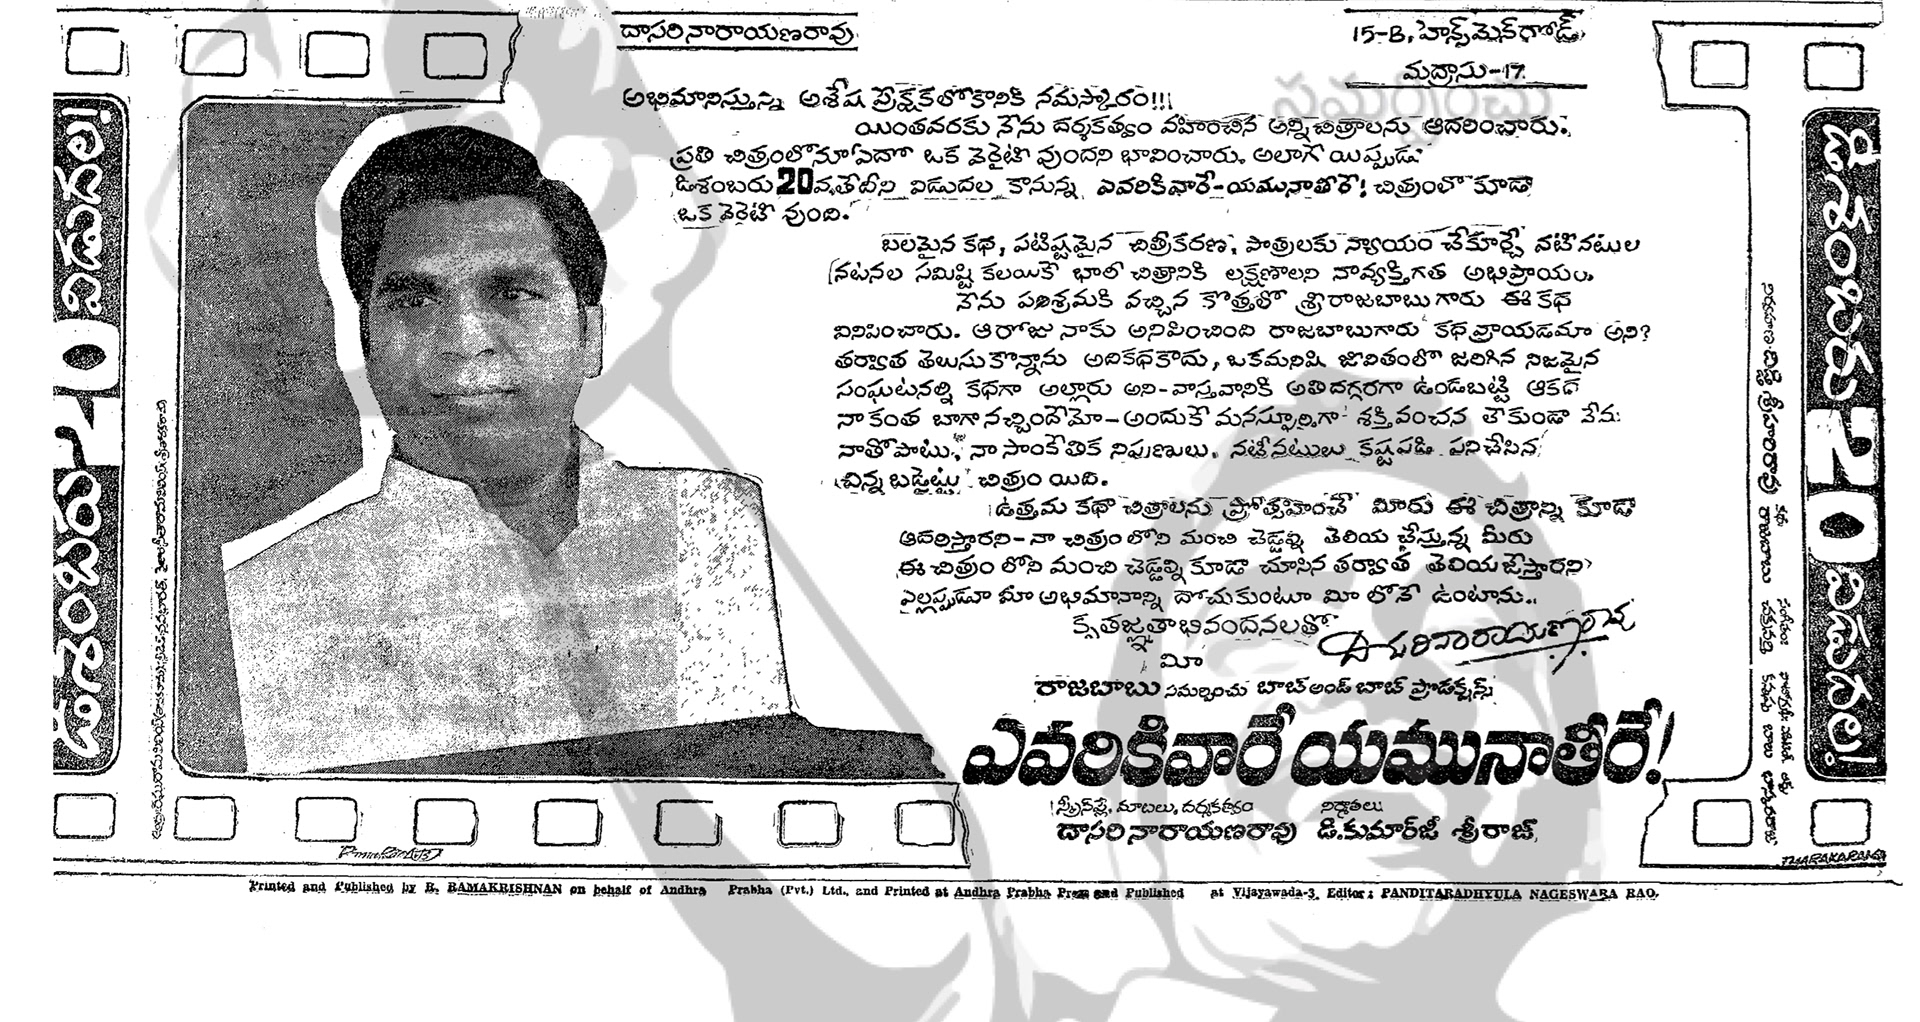 దాసరి నారాయణరావు
15-B, హేన్స్‌మెన్‌రోడ్
మద్రాసు-17
సమర్పించు
అభిమానిస్తున్న అశేష ప్రేక్షకలోకానికి నమస్కారం!!!
యింతవరకు నేను దర్శకత్వం వహించిన అన్ని చిత్రాలను ఆదరించారు.
ప్రతి చిత్రంలోనూ ఏదో ఒక వెరైటీ వుందని భావించారు. అలాగే యిప్పుడు
డిశంబరు 20వ తేదీని విడుదల కానున్న ఎవరికివారే-యమునాతీరే! చిత్రంలో కూడా
ఒక వెరైటీ వుంది.
బలమైన కథ, పటిష్టమైన చిత్రీకరణ, పాత్రలకు న్యాయం చేకూర్చే నటీనటుల
నటనల సమిష్టి కలయికే భారీ చిత్రానికి లక్షణాలని నావ్యక్తిగత అభిప్రాయం.
నేను పరిశ్రమకి వచ్చిన కొత్తలో శ్రీ రాజబాబు గారు ఈ కథ
వినిపించారు. ఆ రోజు నాకు అనిపించింది రాజబాబుగారు కథ వ్రాయడమా అని?
తర్వాత తెలుసుకొన్నాను అదికథకాదు, ఒకమనిషి జీవితంలో జరిగిన నిజమైన
సంఘటనల్ని కథగా అల్లారు అని-వాస్తవానికి అతిదగ్గరగా ఉండబట్టి ఆకథ
నాకంత బాగా నచ్చిందేమో-అందుకే మనస్ఫూర్తిగా శక్తివంచన లేకుండా నేను
నాతోపాటు, నా సాంకేతిక నిపుణులు, నటీనటులు కష్టపడి పనిచేసిన
చిన్న బడ్జెట్టు చిత్రం యిది.
ఉత్తమ కథా చిత్రాలను ప్రోత్సహించే మీరు ఈ చిత్రాన్ని కూడా
ఆదరిస్తారని-నా చిత్రంలోని మంచి చెడ్డల్ని తెలియ చేస్తున్న మీరు
ఈ చిత్రం లోని మంచి చెడ్డల్ని కూడా చూసిన తర్వాత తెలియజేస్తారని
ఎల్లప్పుడూ మీ అభిమానాన్ని దోచుకుంటూ మీ లోనే ఉంటాను..
కృతజ్ఞతాభివందనలతో
దాసరి నారాయణరావు
మీ
రాజబాబు సమర్పించు బాబ్ అండ్ బాబ్ ప్రొడక్షన్స్
ఎవరికివారే యమునాతీరే!
స్క్రీన్‌ప్లే, మాటలు, దర్శకత్వం
నిర్మాతలు
దాసరి నారాయణరావు
డి.కుమార్‌జీ శ్రీరాజ్
డిశంబరు 20 విడుదల!
డిశంబరు 20 విడుదల!
కథ రాజబాబు
సంగీతం: చక్రవర్తి
Printed and Published by B. RAMAKRISHNAN on behalf of Andhra Prabha (Pvt.) Ltd., and Printed at Andhra Prabha Press and Published at Vijayawada-3. Editor: PANDITARADHYULA NAGESWARA RAO.